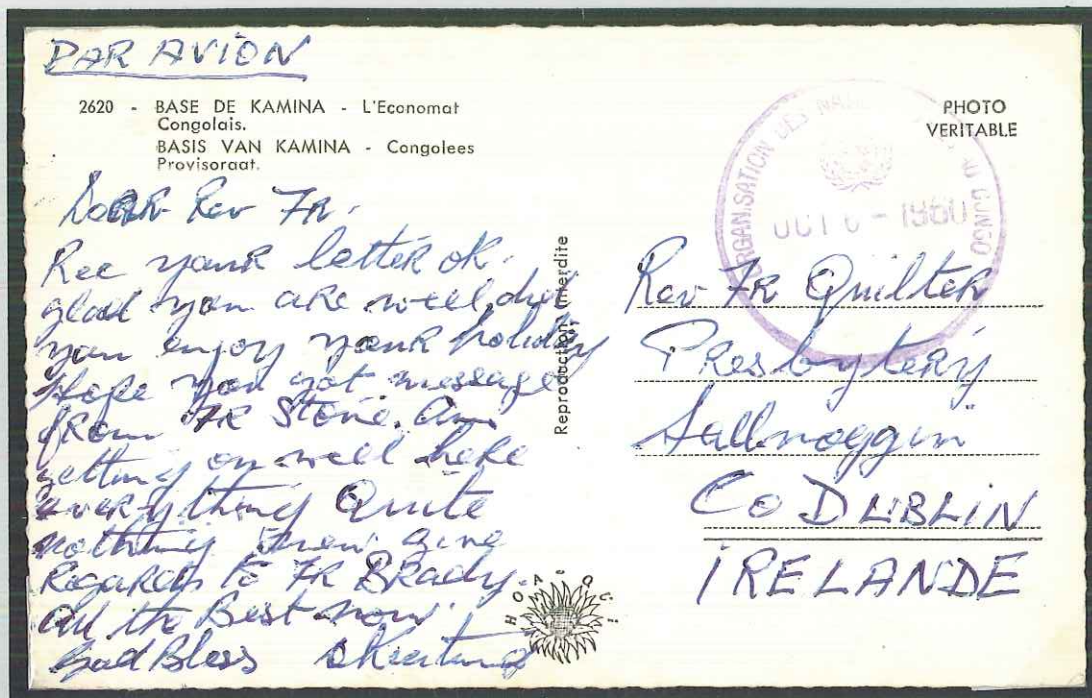 PAR AVION
2620 - BASE DE KAMINA - L'Economat
Congolais.
BASIS VAN KAMINA - Congolees
Provisoraat.
PHOTO
VERITABLE
ORGANISATION DES NATIONS AU CONGO
OCT 6 - 1960
Dear Rev Fr.
Rec your letter ok.
glad you are well, did
you enjoy your holiday
Hope you got message
from Fr Stone. Am
getting on well here
everything Quite
nothing new give
Regards to Fr Brady.
All the Best now.
God Bless
Reproduction Interdite
Rev Fr Quilter
Presbytery
Sallnoggin
Co DUBLIN
IRELANDE